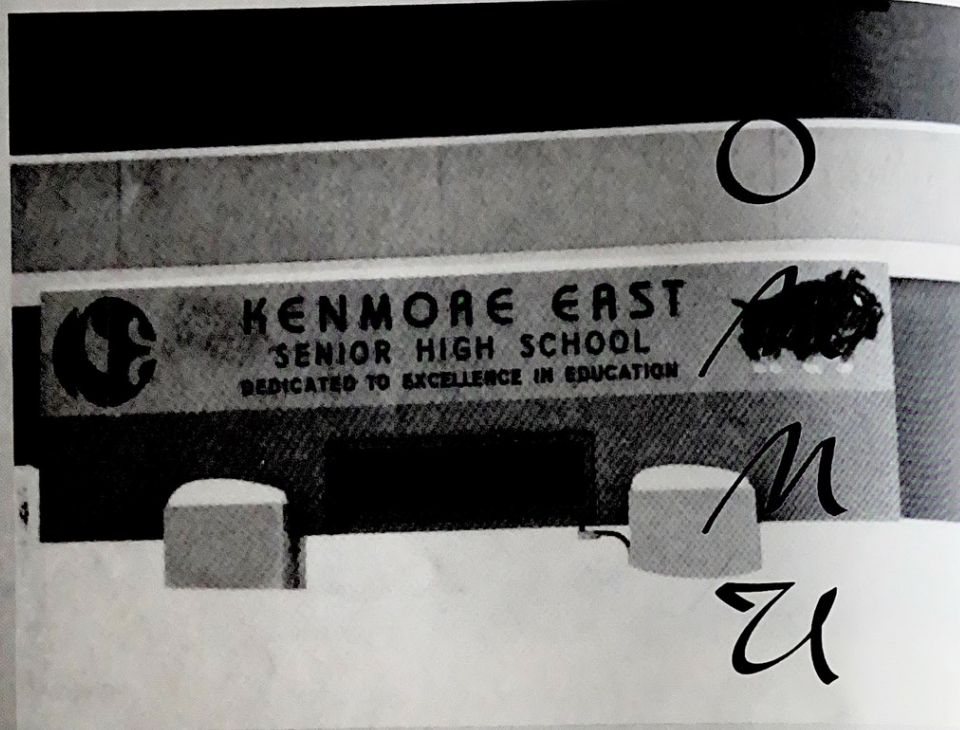 KENMORE EAST
SENIOR HIGH SCHOOL
DEDICATED TO EXCELLENCE IN EDUCATION
O
M
U